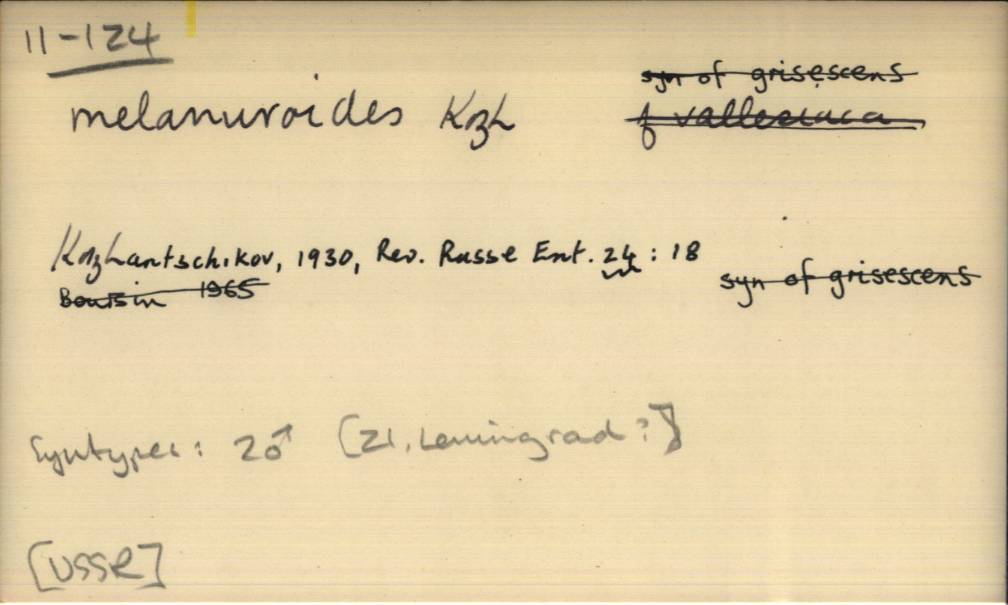 11-124
syn of grisescens
melanuroides Kozh
f vallesiaca
Kozhantschikov, 1930, Rev. Russe Ent. 24 : 18
Boursin 1965
syn of grisescens
Syntypes: 2♂ [ZI, Leningrad?]
[USSR]